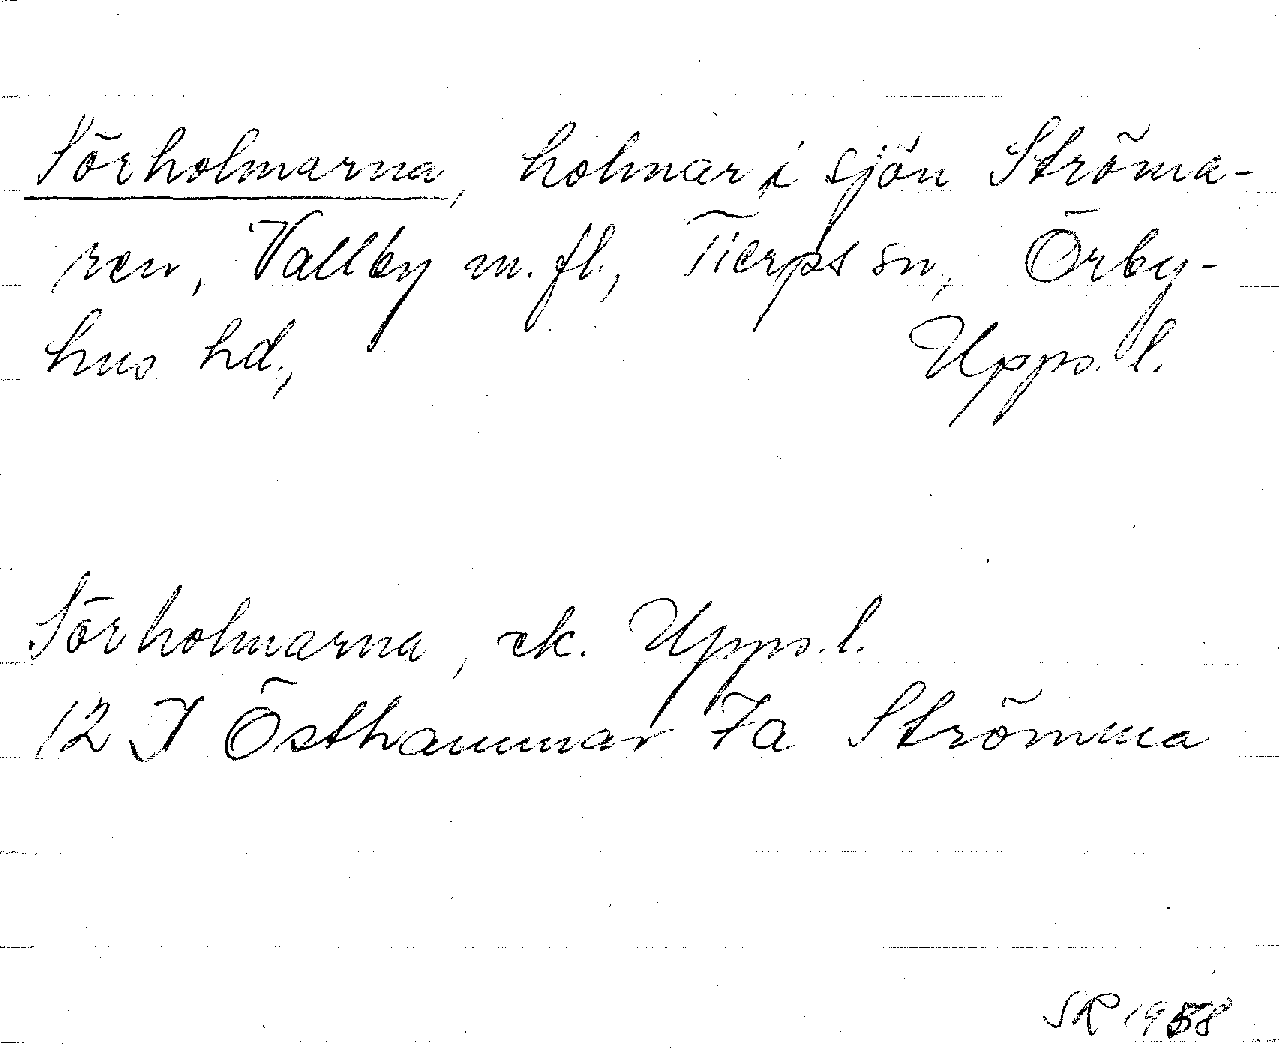 Sörholmarna, holmar i sjön Ströma-
ren, Vallby m.fl., Tierps sn, Örby-
hus hd., Upps. l.
Sörholmarna, ek. Upps. l.
12 I Östhammar 7a Strömma
SR 1958